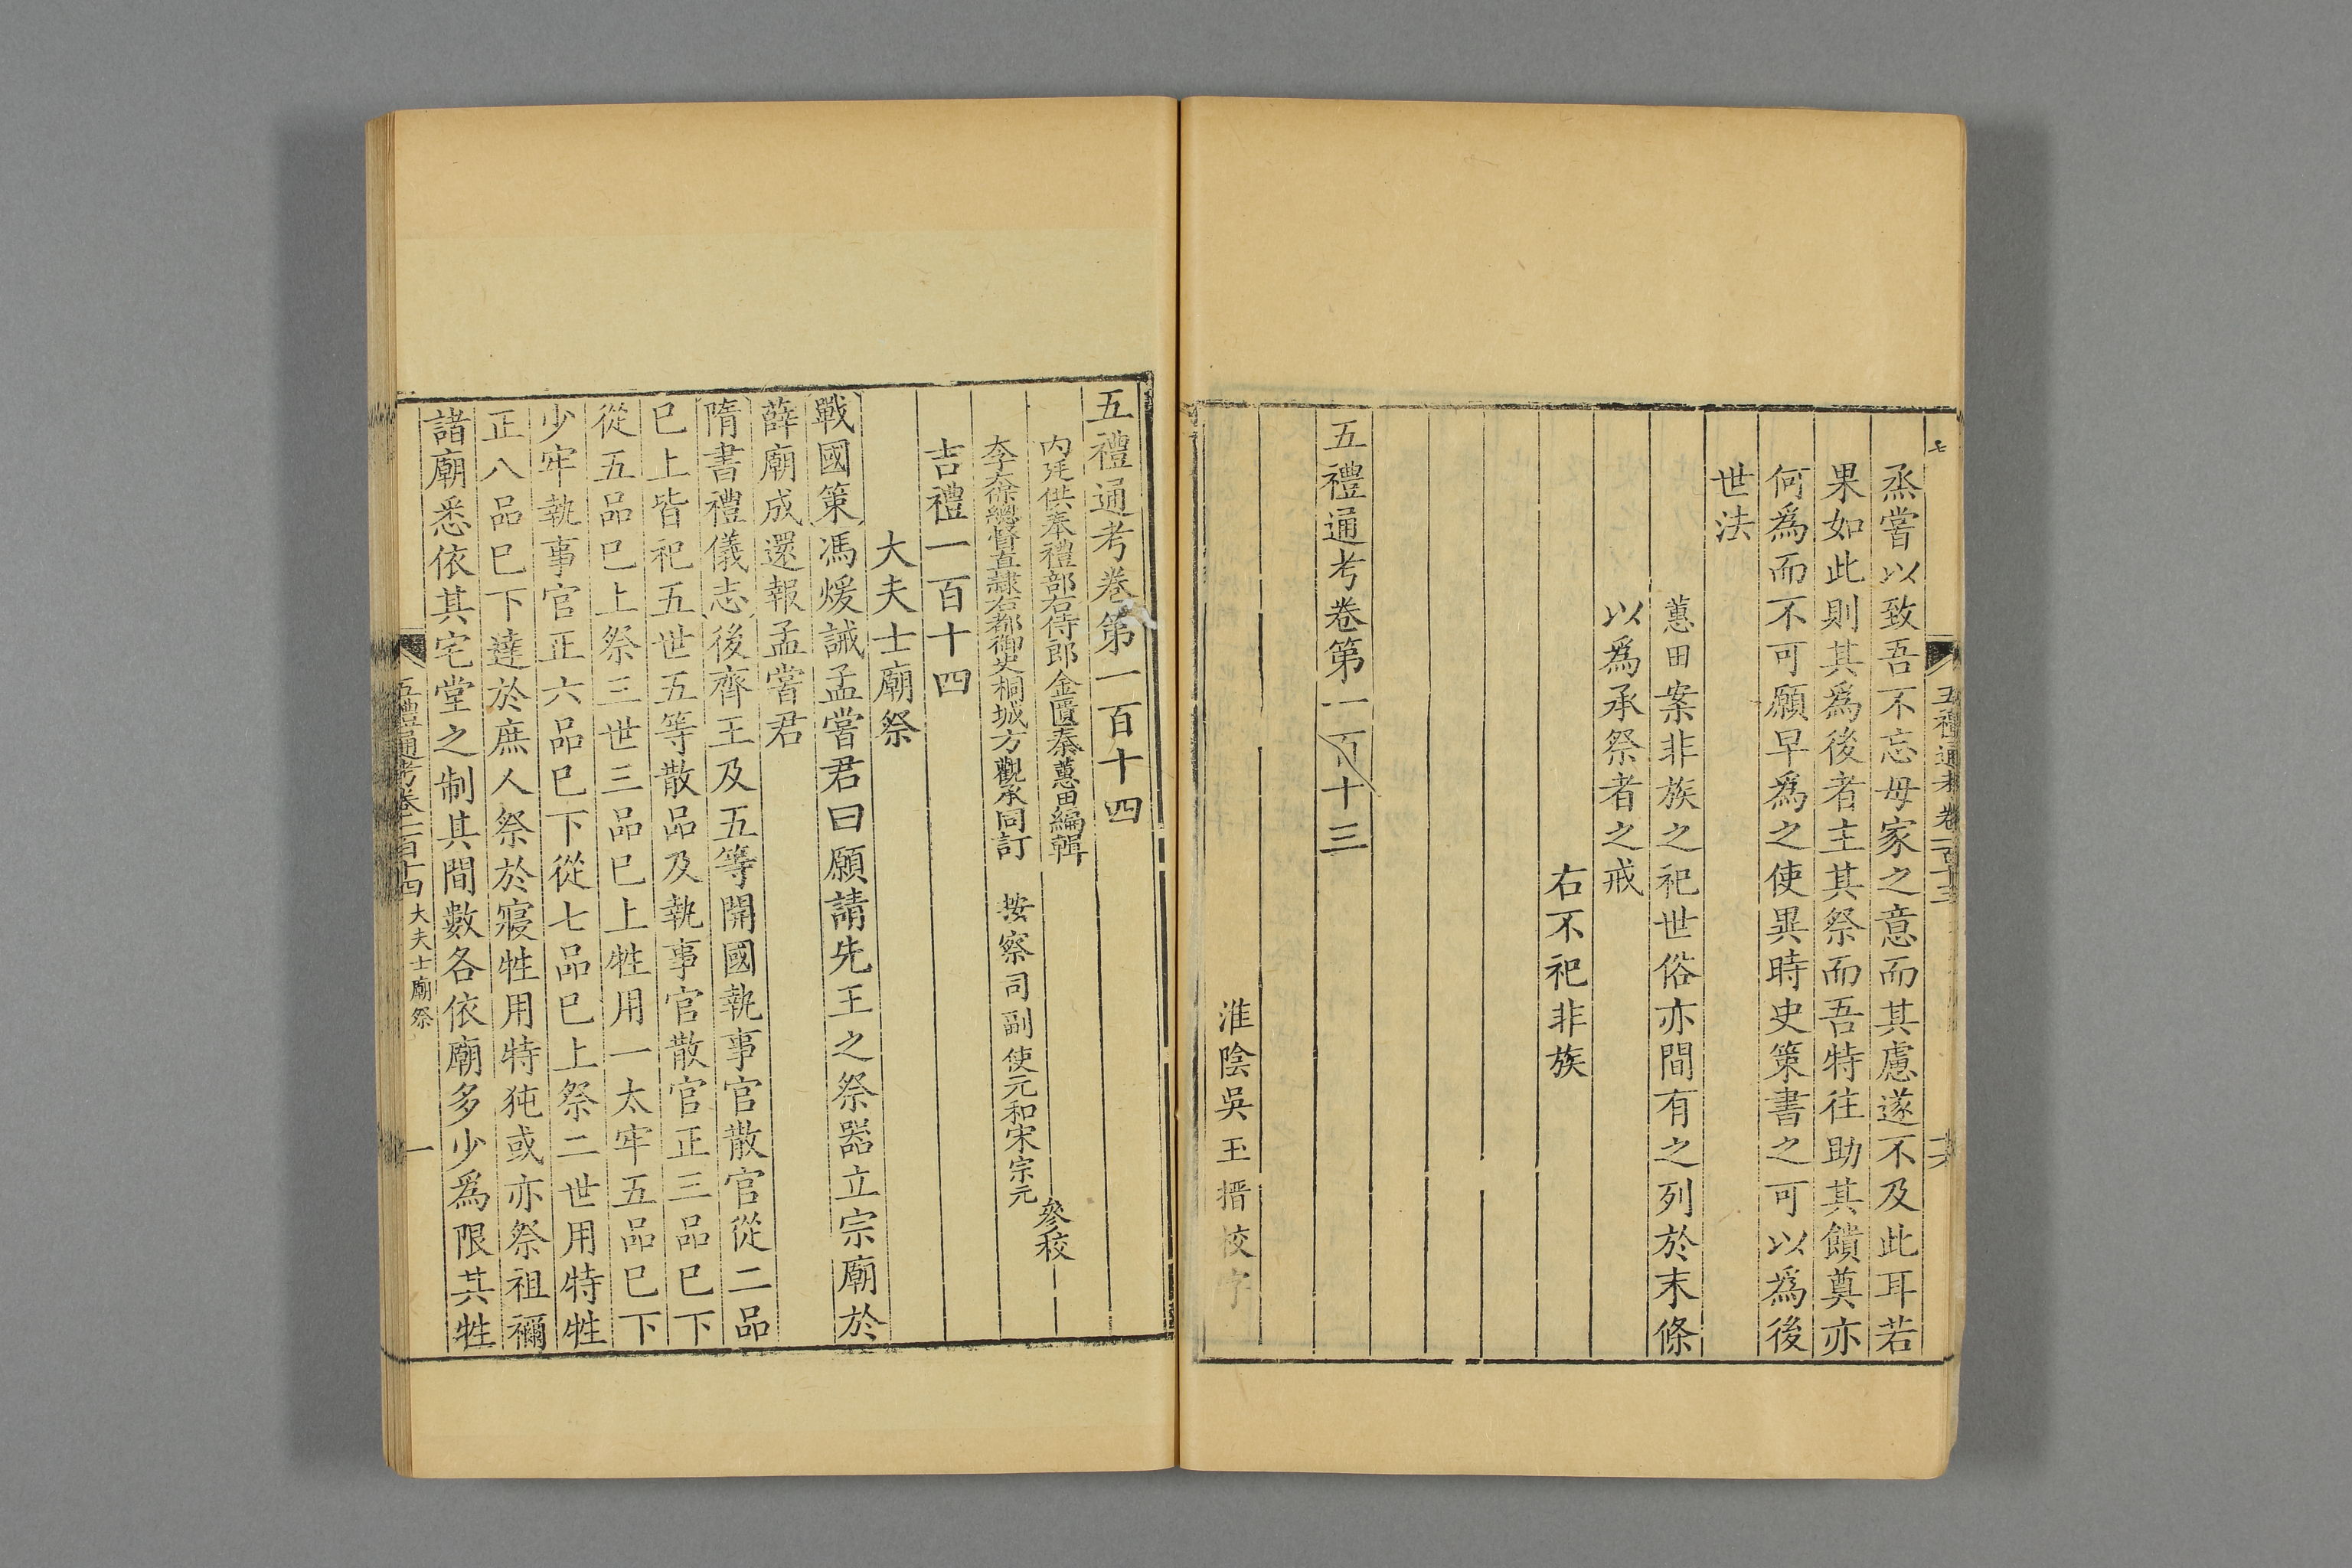 烝嘗以致吾不忘母家之意而其慮遂不及此耳若
果如此則其爲後者主其祭而吾特往助其饋奠亦
何爲而不可願早爲之使異時史策書之可以爲後
世法
蕙田案非族之祀世俗亦間有之列於末條
以爲承祭者之戒
右不祀非族
五禮通考卷第一百十三
淮陰吳玉搢校字
五禮通考卷第一百十四
內廷供奉禮部右侍郎金匱秦蕙田編輯
太子太保總督直隷右都御史桐城方觀承同訂
按察司副使元和宋宗元
參校
吉禮一百十四
大夫士廟祭
戰國策馮煖誡孟嘗君曰願請先王之祭器立宗廟於
薛廟成還報孟嘗君
隋書禮儀志後齊王及五等開國執事官散官從二品
巳上皆祀五世五等散品及執事官散官正三品巳下
從五品巳上祭三世三品巳上牲用一太牢五品巳下
少牢執事官正六品巳下從七品巳上祭二世用特牲
正八品巳下達於庶人祭於寢牲用特㹠或亦祭祖禰
諸廟悉依其宅堂之制其間數各依廟多少爲限其牲
五禮通考卷一百十四 大夫士廟祭 一